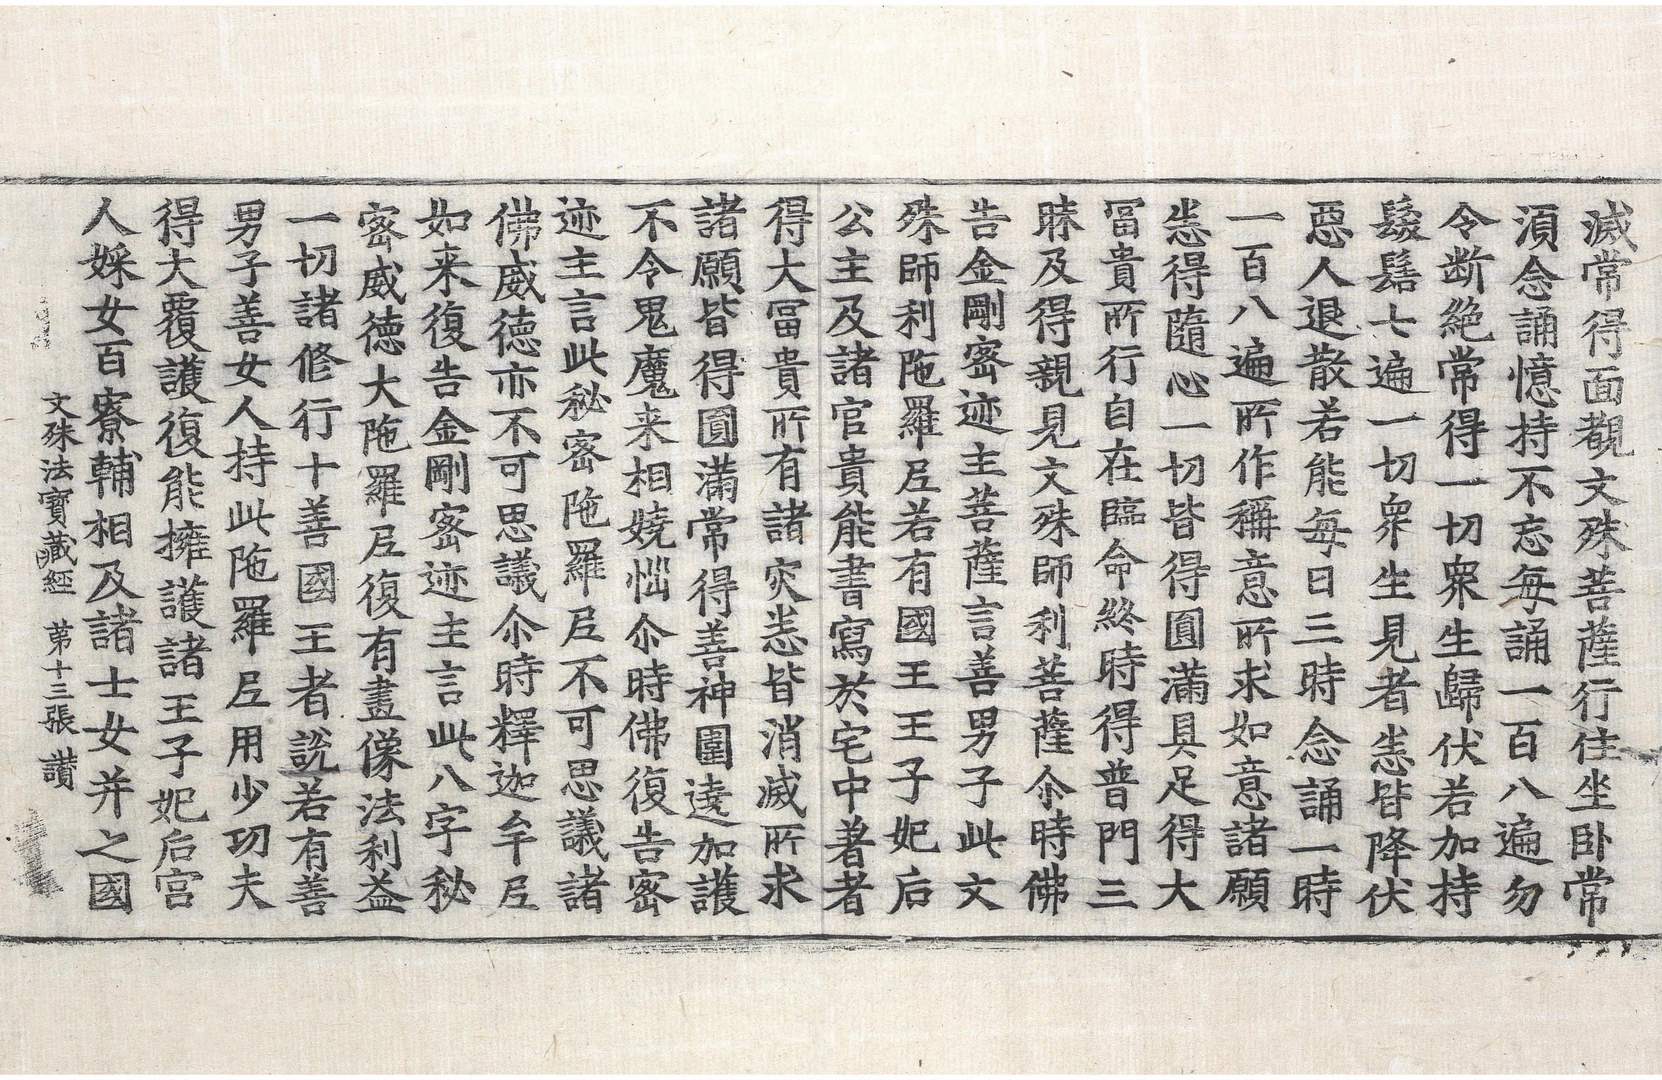 滅常得面觀文殊菩薩行住坐卧常
湏念誦憶持不忘每誦一百八遍勿
令断絶常得一切衆生歸伏若加持
髮髻七遍一切衆生見者悉皆降伏
惡人退散若能每日三時念誦一時
一百八遍所作稱意所求如意諸願
悉得隨心一切皆得圓滿具足得大
冨貴所行自在臨命終時得普門三
昧及得親見文殊師利菩薩尒時佛
告金剛宻迹主菩薩言善男子此文
殊師利陁羅𡰱若有國王王子妃后
公主及諸官貴能書寫於宅中著者
得大冨貴所有諸灾悉皆消滅所求
諸願皆得圓滿常得善神圍遶加護
不令鬼魔来相嬈惱尒時佛復告宻
迹主言此秘宻陁羅𡰱不可思議諸
佛威德亦不可思議尒時釋迦牟𡰱
如来復告金剛宻迹主言此八字秘
宻威德大陁羅𡰱復有畫像法利益
一切諸修行十善國王者說若有善
男子善女人持此陁羅𡰱用少功夫
得大覆護復能擁護諸王子妃后宫
人婇女百寮輔相及諸士女并之國
文殊法寳藏經　苐十三張　讃